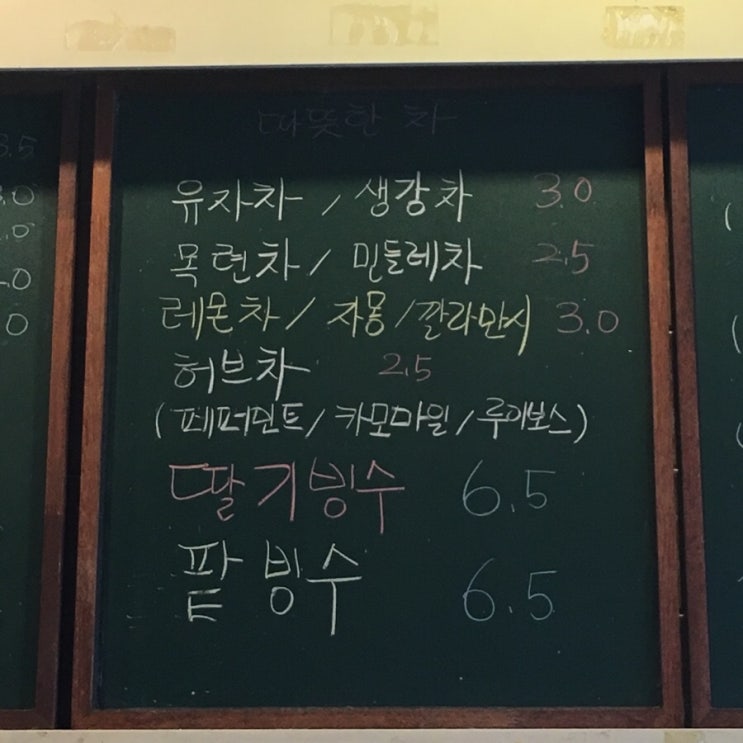 따뜻한 차
유자차 / 생강차 3.0
목련차 / 민들레차 2.5
레몬차 / 자몽 / 깔라만시 3.0
허브차 2.5
(페퍼민트 / 카모마일 / 루이보스)
딸기빙수 6.5
팥빙수 6.5